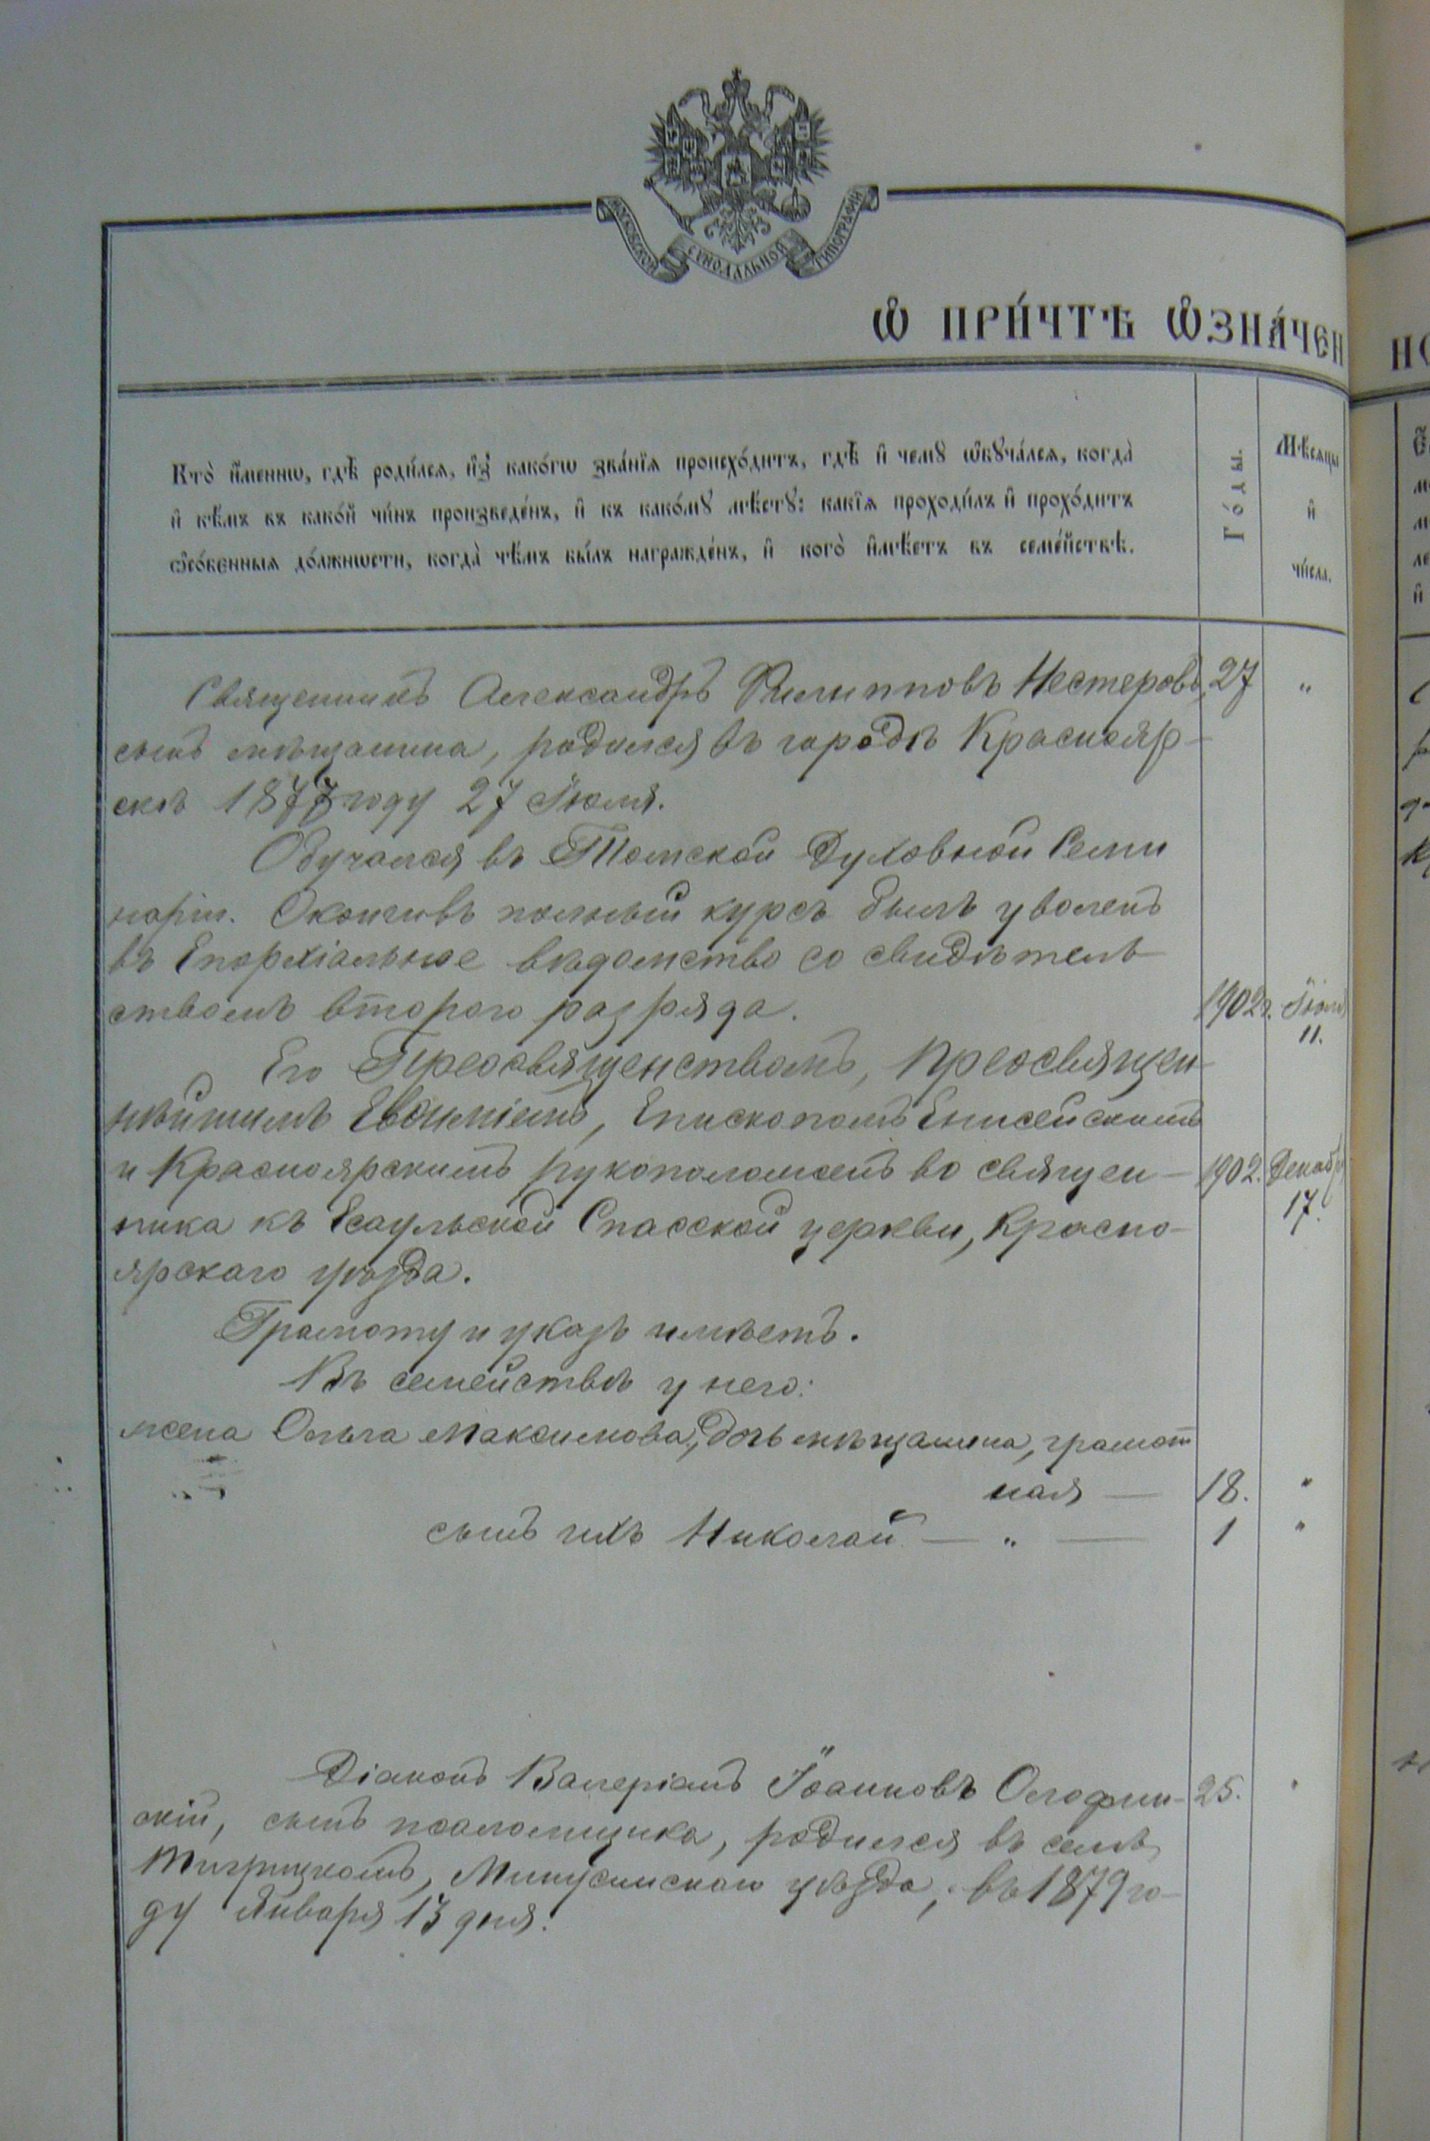 МОСКОВСКОЙ СѴНОДАЛЬНОЙ ТИПОГРАФІИ
Ѽ ПРИ́ЧТѢ ѼЗНА́ЧЕН
Кто̀ и҆́меннѡ, гдѣ̀ роди́лсѧ, и҆з̾ како́гѡ зва́нїѧ происхо́дитъ, гдѣ̀ и҆ чемꙋ̀ ѡ҆бꙋча́лсѧ, когда̀
и҆ кѣ́мъ въ како́й чи́нъ произведе́нъ, и҆ къ како́мꙋ мѣ́стꙋ: какі̑ѧ проходи́лъ и҆ прохо́дитъ
ѻ҆со́бенныѧ до́лжнѡсти, когда̀ чѣ́мъ бы́лъ награжде́нъ, и҆ кого̀ и҆мѣ́етъ въ семе́йствѣ.
Го́ды.
Мѣ́сѧцы
и҆
чи́сла.
Священникъ Александръ Филипповъ Нестеровъ, 27 "
сынъ мѣщанина, родился въ городѣ Краснояр-
скѣ 1877 году 27 Іюля.
Обучался въ Томской Духовной Семи
наріи. Окончивъ полный курсъ былъ уволенъ
въ Епархіальное вѣдомство со свидѣтель-
ствомъ второго разряда. 1902г.
11.
Его Преосвященствомъ, Преосвящен-
нѣйшимъ Евѳиміемъ, Епископомъ Енисейскимъ
и Красноярскимъ рукоположенъ во священ- 1902. Декабр
ника къ Есаульской Спасской церкви, Красно- 17.
ярскаго уѣзда.
Грамоту и указъ имѣетъ.
Въ семействѣ у него:
жена Ольга Максимова, дочь мѣщанина, грамот
ная — 18. "
сынъ ихъ Николай — " — 1 "
Діаконъ Валеріанъ Іоанновъ Олофин- 25. "
скій, сынъ псаломщика, родился въ селѣ
Тигрицкомъ, Минусинскаго уѣзда, въ 1879 го-
ду Января 13 дня.